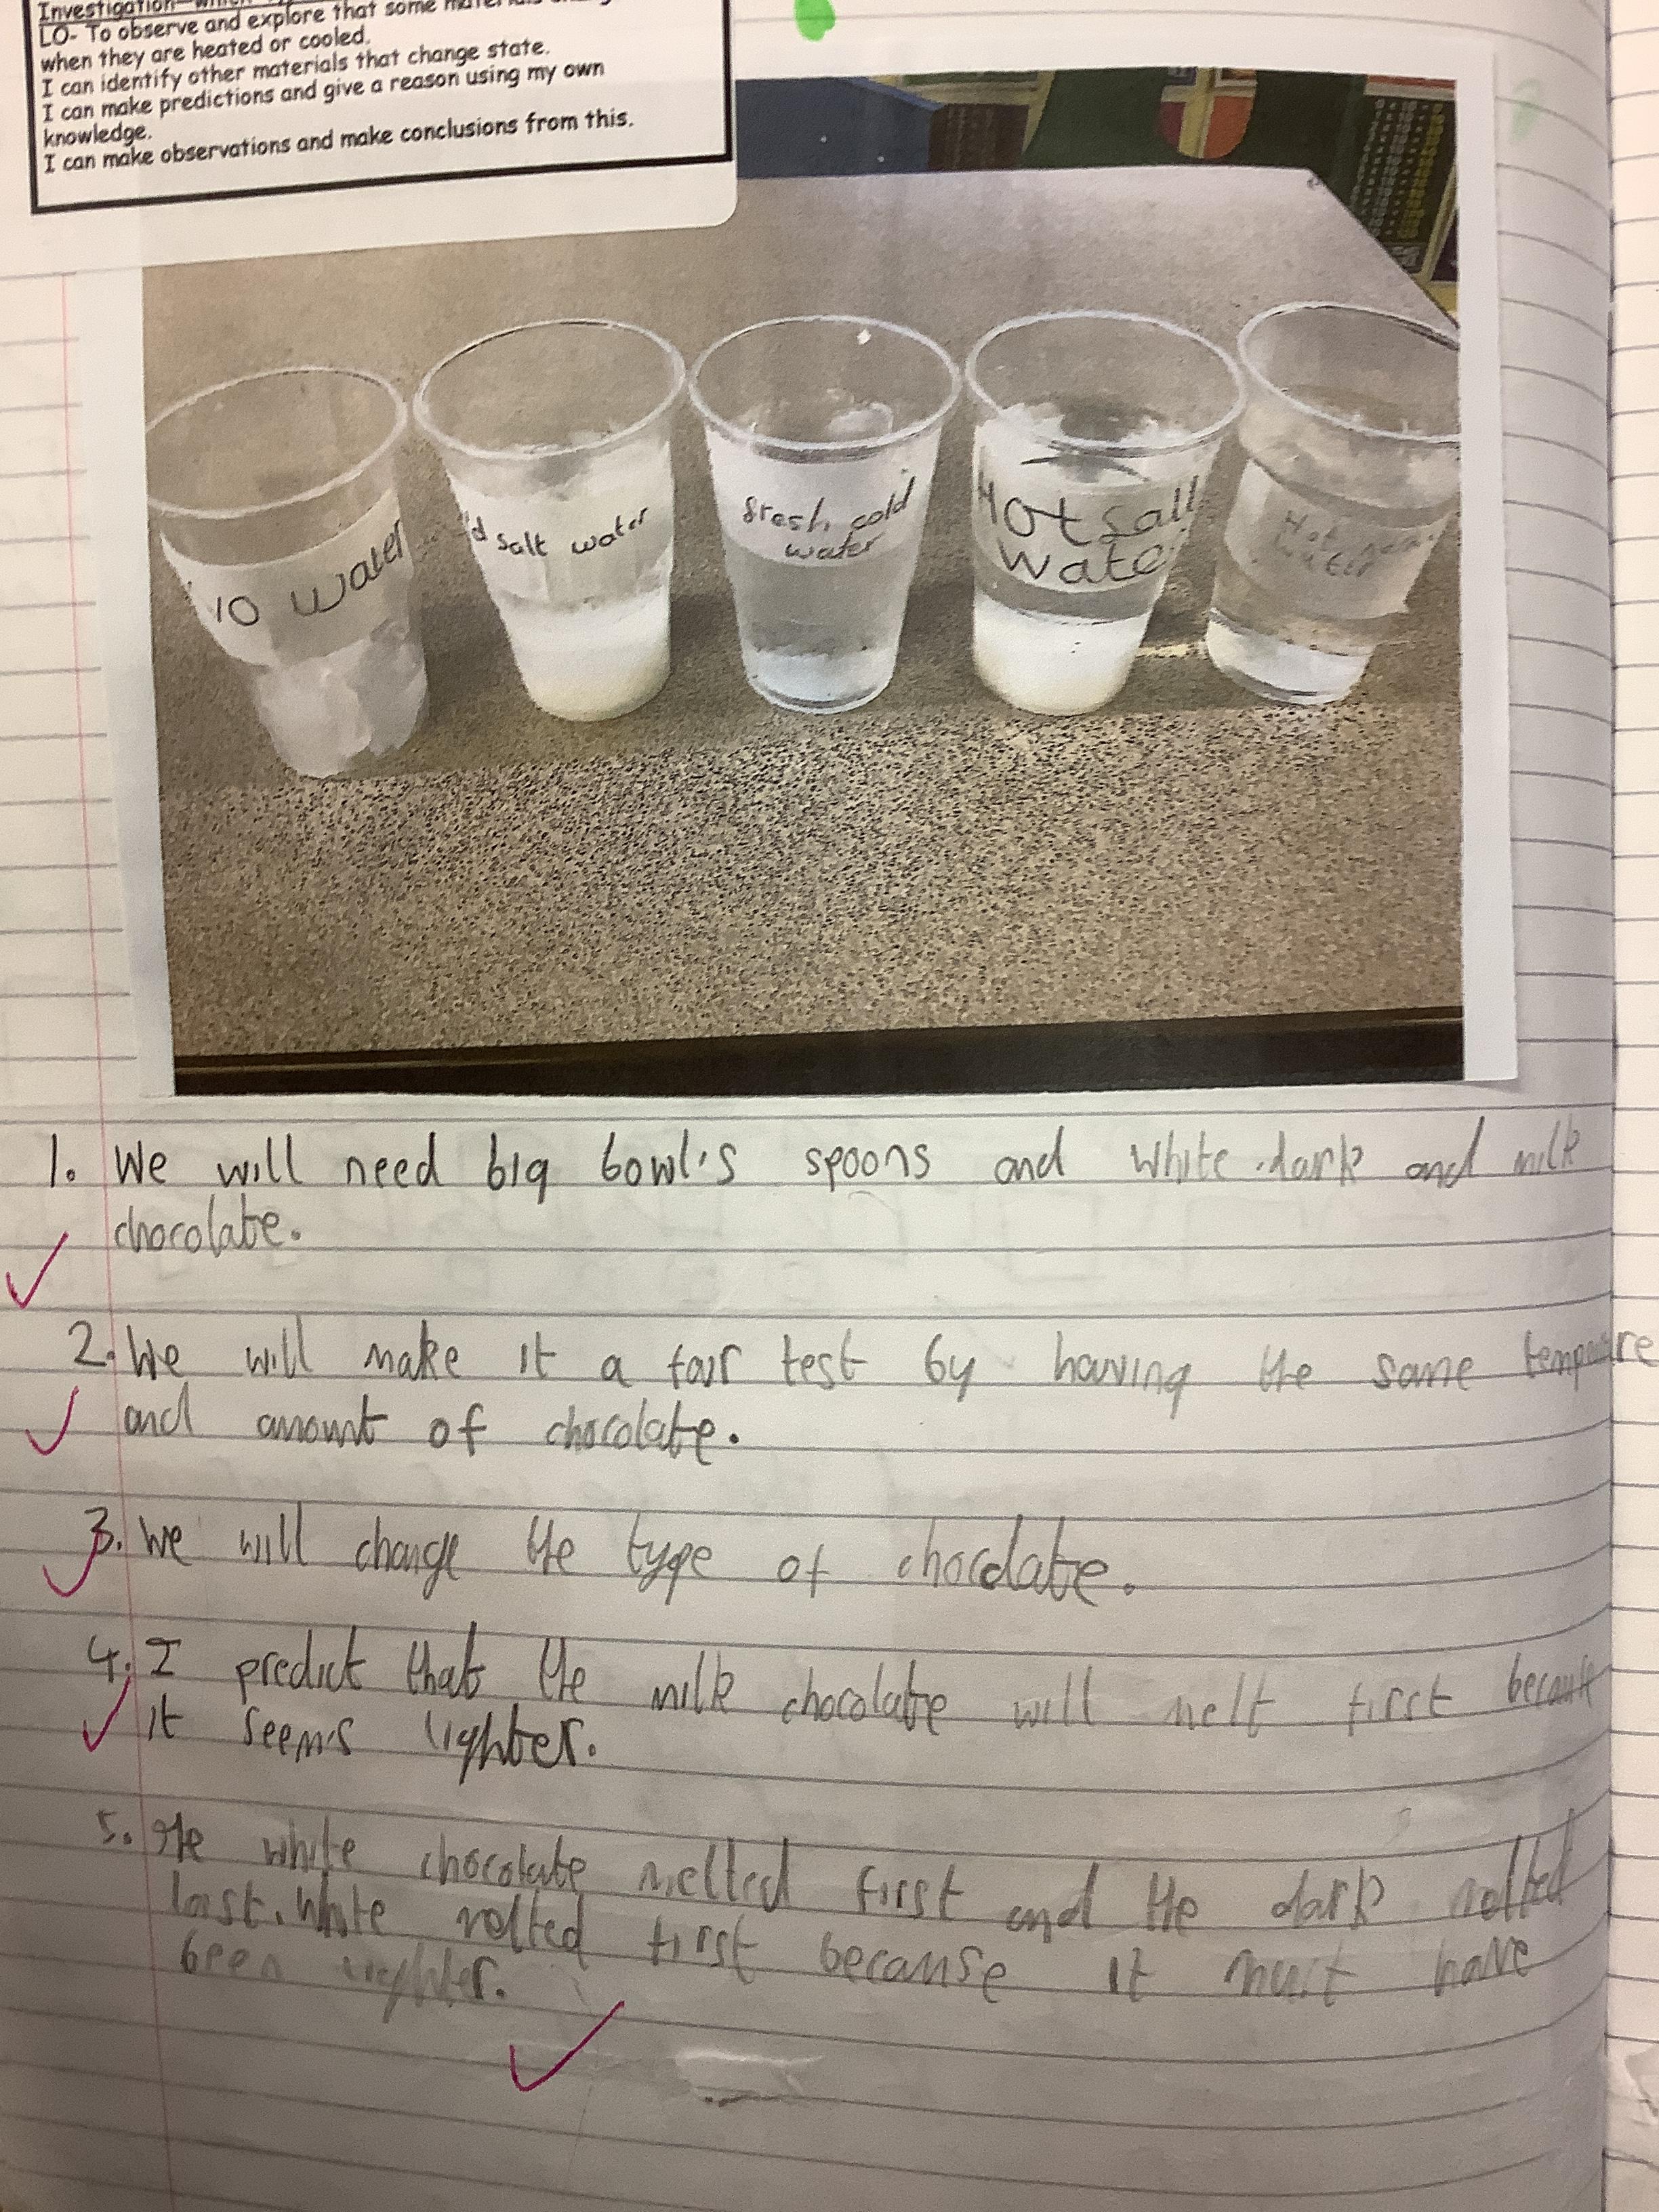 Investigation
LO- To observe and explore that some materials
when they are heated or cooled.
I can identify other materials that change state.
I can make predictions and give a reason using my own
knowledge.
I can make observations and make conclusions from this.
10 water
d salt water
fresh cold
water
Hot salt
water
Hot
water
1. We will need big bowl's spoons and white dark and milk
chocolate.
2. We will make it a fair test by having the same
and amount of chocolate.
3. We will change the type of chocolate.
4. I predict that the milk chocolate will melt first because
it seem's lighter.
5. The white chocolate melted first and the dark melted
last. White melted first because it must have
been lighter.